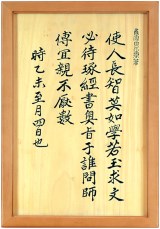 使人長智英如學若玉求文
必待琢經書奧旨于誰問師
傅宜親不厭數
時乙未至月四日也